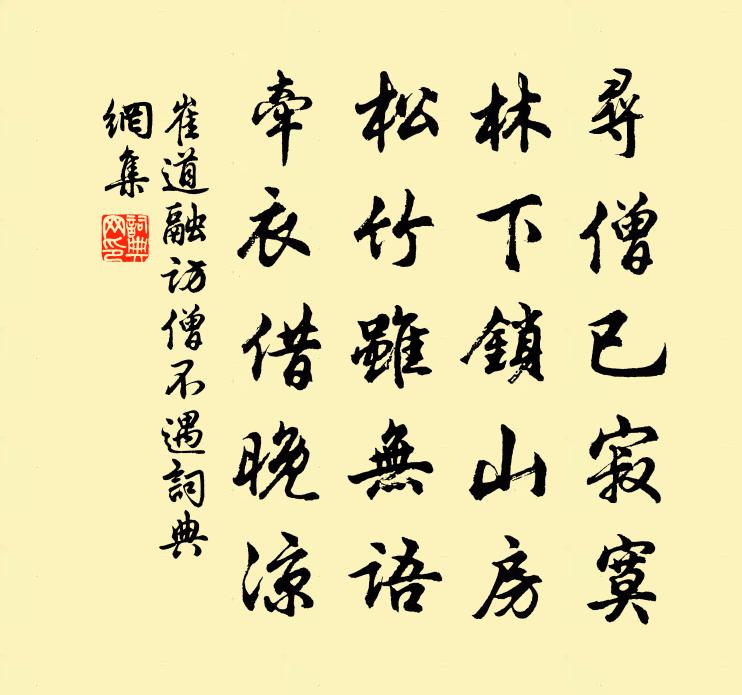 尋僧已寂寞
林下鎖山房
松竹雖無語
牽衣借晚涼
崔道融訪僧不遇詞典
網集
詞典
网印